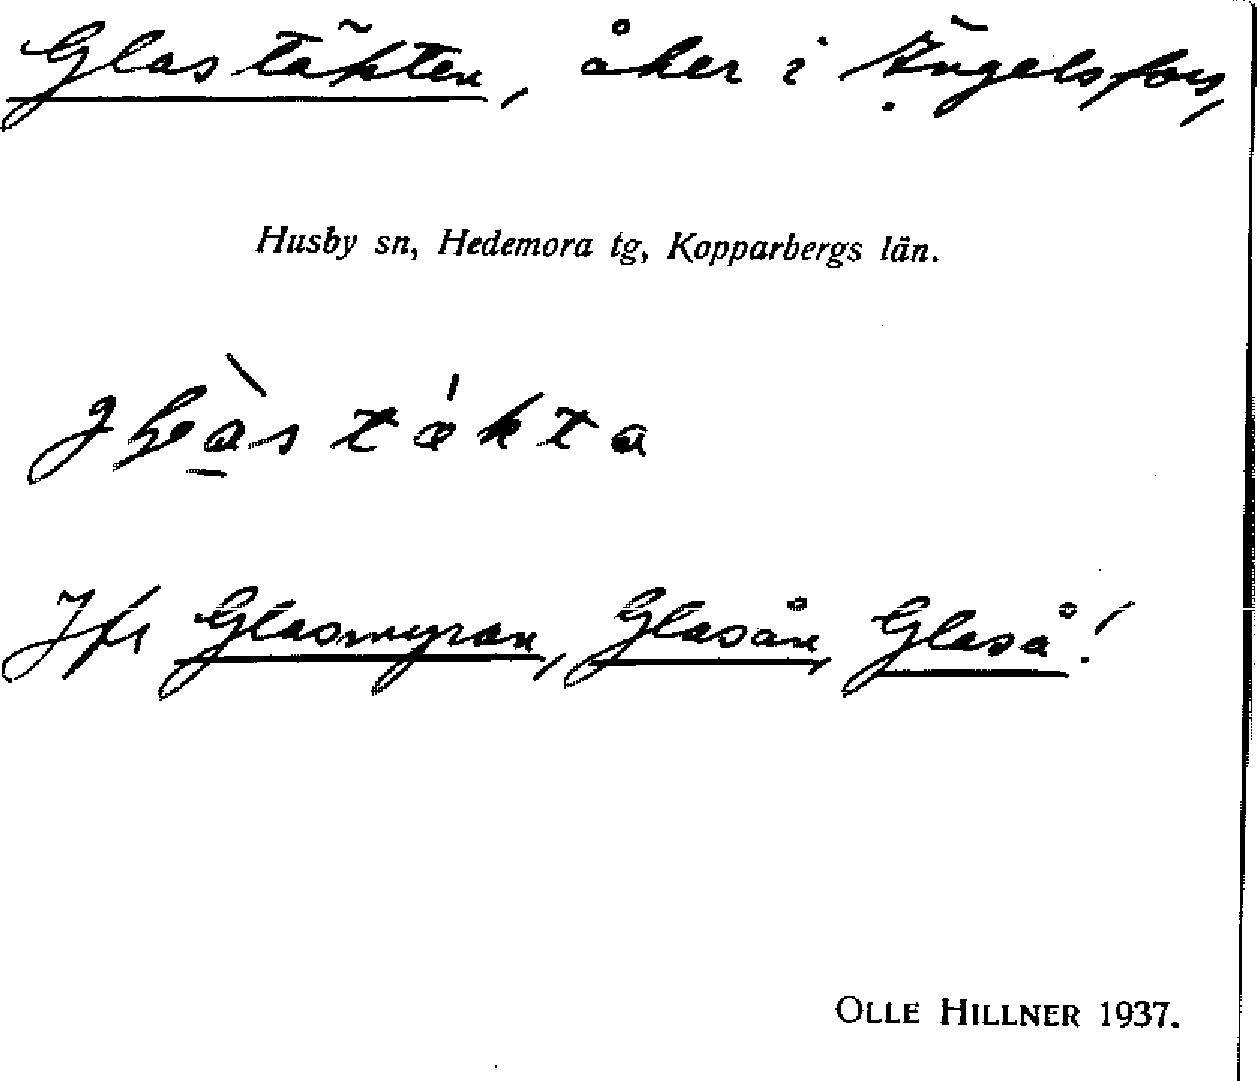 Glastäkten, åker i Ängelsfors,
Husby sn, Hedemora tg, Kopparbergs län.
Jfr Glasmyran, Glasån, Glaså!
OLLE HILLNER 1937.